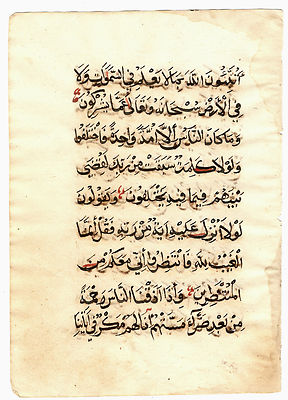 أتنبئون الله بما لا يعلم في السموات ولا
في الأرض سبحانه وتعالى عما يشركون
وما كان الناس إلا أمة واحدة فاختلفوا
ولولا كلمة سبقت من ربك لقضي
بينهم فيما فيه يختلفون ويقولون
لولا أنزل عليه آية من ربه فقل إنما
الغيب لله فانتظروا إني معكم من
المنتظرين وإذا أذقنا الناس رحمة
من بعد ضراء مستهم إذا لهم مكر في آياتنا